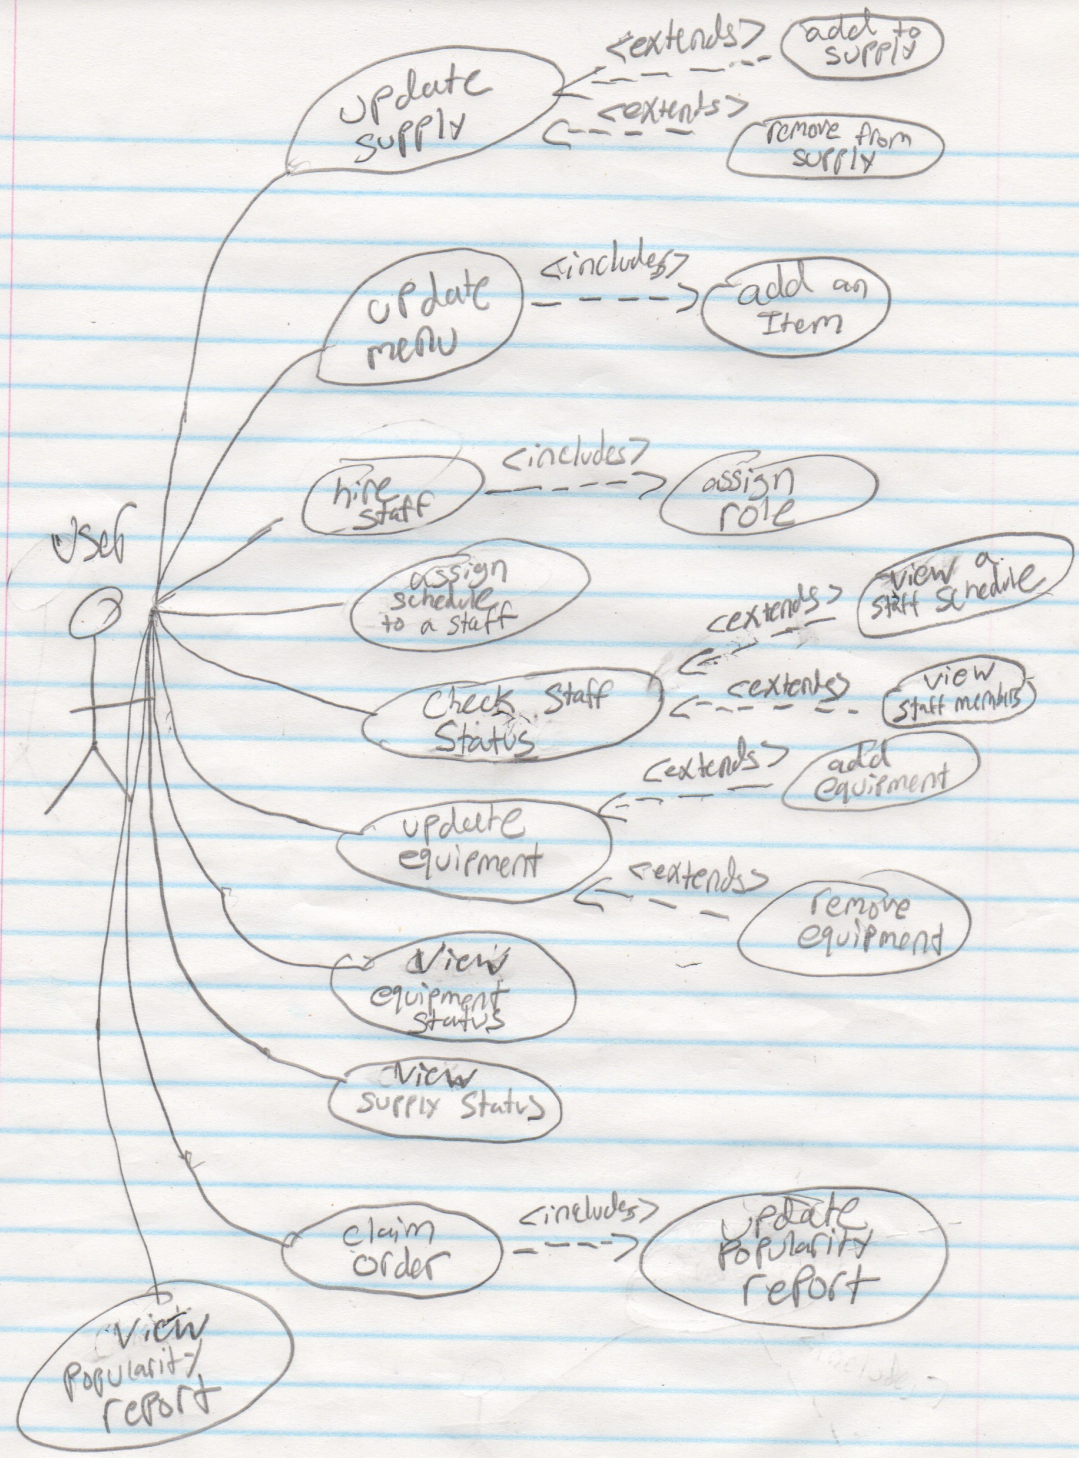 <extends>
add to
supply
update
supply
<extends>
remove from
supply
update
menu
<includes>
add an
Item
hire
staff
<includes>
assign
role
User
assign
schedule
to a staff
<extends>
view a
staff schedule
check staff
status
<extends>
view
staff members
<extends>
add
equipment
update
equipment
<extends>
remove
equipment
view
equipment
status
view
supply status
claim
order
<includes>
update
popularity
report
view
popularity
report